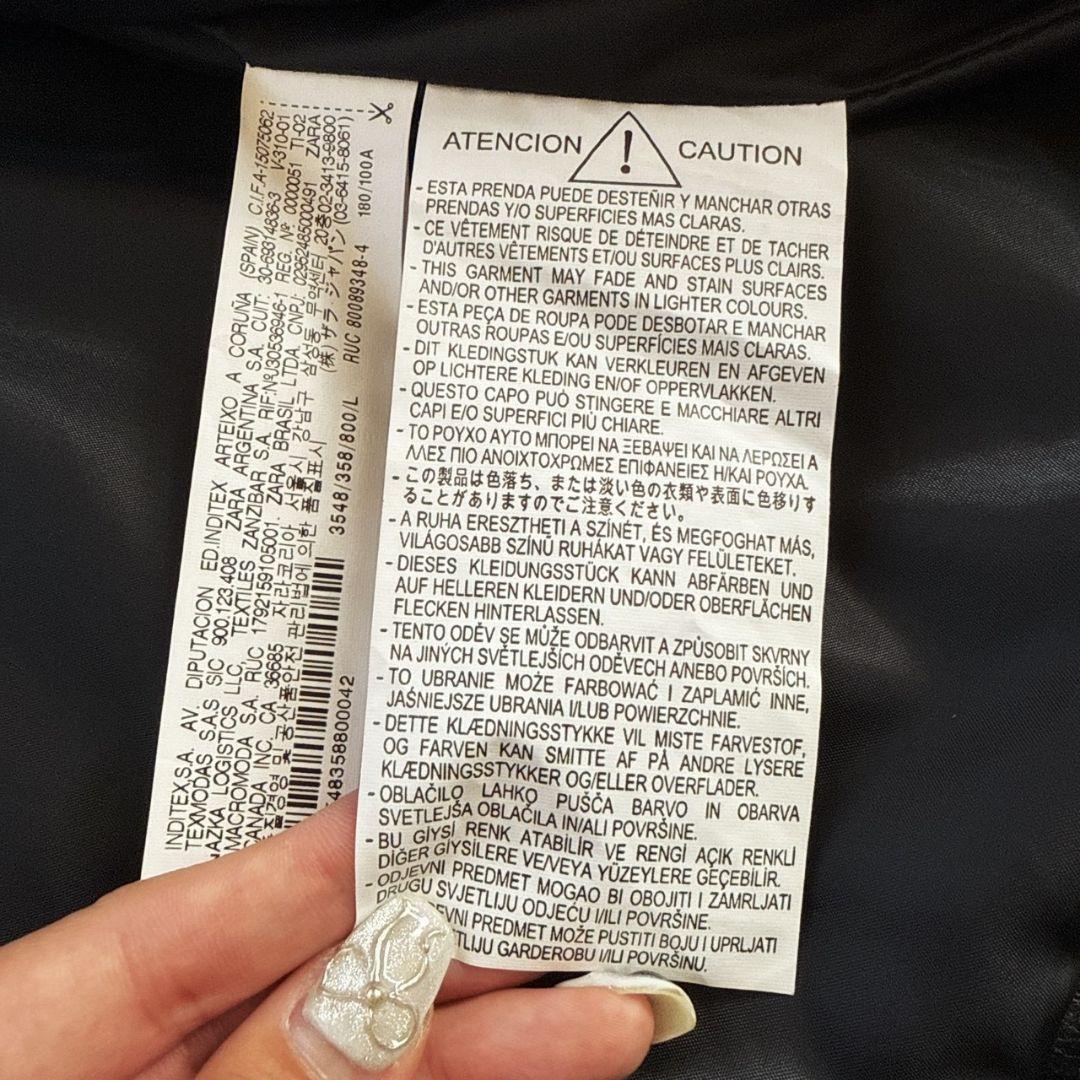 ATENCION ! CAUTION
- ESTA PRENDA PUEDE DESTEÑIR Y MANCHAR OTRAS
PRENDAS Y/O SUPERFICIES MAS CLARAS.
- CE VÊTEMENT RISQUE DE DÉTEINDRE ET DE TACHER
D'AUTRES VÊTEMENTS ET/OU SURFACES PLUS CLAIRS.
- THIS GARMENT MAY FADE AND STAIN SURFACES
AND/OR OTHER GARMENTS IN LIGHTER COLOURS.
- ESTA PEÇA DE ROUPA PODE DESBOTAR E MANCHAR
OUTRAS ROUPAS E/OU SUPERFÍCIES MAIS CLARAS.
- DIT KLEDINGSTUK KAN VERKLEUREN EN AFGEVEN
OP LICHTERE KLEDING EN/OF OPPERVLAKKEN.
- QUESTO CAPO PUÒ STINGERE E MACCHIARE ALTRI
CAPI E/O SUPERFICI PIÙ CHIARE.
- ΤΟ ΡΟΥΧΟ ΑΥΤΟ ΜΠΟΡΕΙ ΝΑ ΞΕΒΑΨΕΙ ΚΑΙ ΝΑ ΛΕΡΩΣΕΙ Α
ΛΛΕΣ ΠΙΟ ΑΝΟΙΧΤΟΧΡΩΜΕΣ ΕΠΙΦΑΝΕΙΕΣ Η/ΚΑΙ ΡΟΥΧΑ.
- この製品は色落ち、または淡い色の衣類や表面に色移りす
ることがありますのでご注意ください。
- A RUHA ERESZTHETI A SZÍNÉT, ÉS MEGFOGHAT MÁS,
VILÁGOSABB SZÍNŰ RUHÁKAT VAGY FELÜLETEKET.
- DIESES KLEIDUNGSSTÜCK KANN ABFÄRBEN UND
AUF HELLEREN KLEIDERN UND/ODER OBERFLÄCHEN
FLECKEN HINTERLASSEN.
- TENTO ODĚV SE MŮŽE ODBARVIT A ZPŮSOBIT SKVRNY
NA JINÝCH SVĚTLEJŠÍCH ODĚVECH A/NEBO POVRŠÍCH.
- TO UBRANIE MOŻE FARBOWAĆ I ZAPLAMIĆ INNE,
JAŚNIEJSZE UBRANIA I/LUB POWIERZCHNIE.
- DETTE KLÆDNINGSSTYKKE VIL MISTE FARVESTOF,
OG FARVEN KAN SMITTE AF PÅ ANDRE LYSERE
KLÆDNINGSSTYKKER OG/ELLER OVERFLADER.
- OBLAČILO LAHKO PUŠČA BARVO IN OBARVA
SVETLEJŠA OBLAČILA IN/ALI POVRŠINE.
- BU GİYSİ RENK ATABİLİR VE RENGİ AÇIK RENKLİ
DİĞER GİYSİLERE VE/VEYA YÜZEYLERE GEÇEBİLİR.
- ODJEVNI PREDMET MOGAO BI OBOJITI I ZAMRLJATI
DRUGU SVJETLIJU ODJEĆU I/ILI POVRŠINE.
EVNI PREDMET MOŽE PUSTITI BOJU I UPRLJATI
TLIJU GARDEROBU I/ILI POVRŠINU.
INDITEX,S.A. AV. DIPUTACION ED.INDITEX ARTEIXO A CORUÑA (SPAIN) C.I.F.A-15075062
TEXMODAS S.A.S SIC 900.123.408 ZARA ARGENTINA S.A. CUIT: 30-69314836-3 V-310-01
AZKA LOGISTICS LLC, TEXTILES ZANZIBAR S.A. RIF:NºJ30536946-1 REG. Nº 0000051 TI-02
MACROMODA S.A. RUC 1792159105001. ZARA BRASIL LTDA. CNPJ: 02962485000491 ZARA
CANADA INC. CA 36665 자라코리아 서울시 강남구 삼성동 무역센터 20층 02-3413-9800
품질경영 및 공산품안전관리법에 의한 품질표시 (株) ザラ ジャパン (03-6415-8061)
3548/358/800/L RUC 80089348-4 180/100A
48358800042